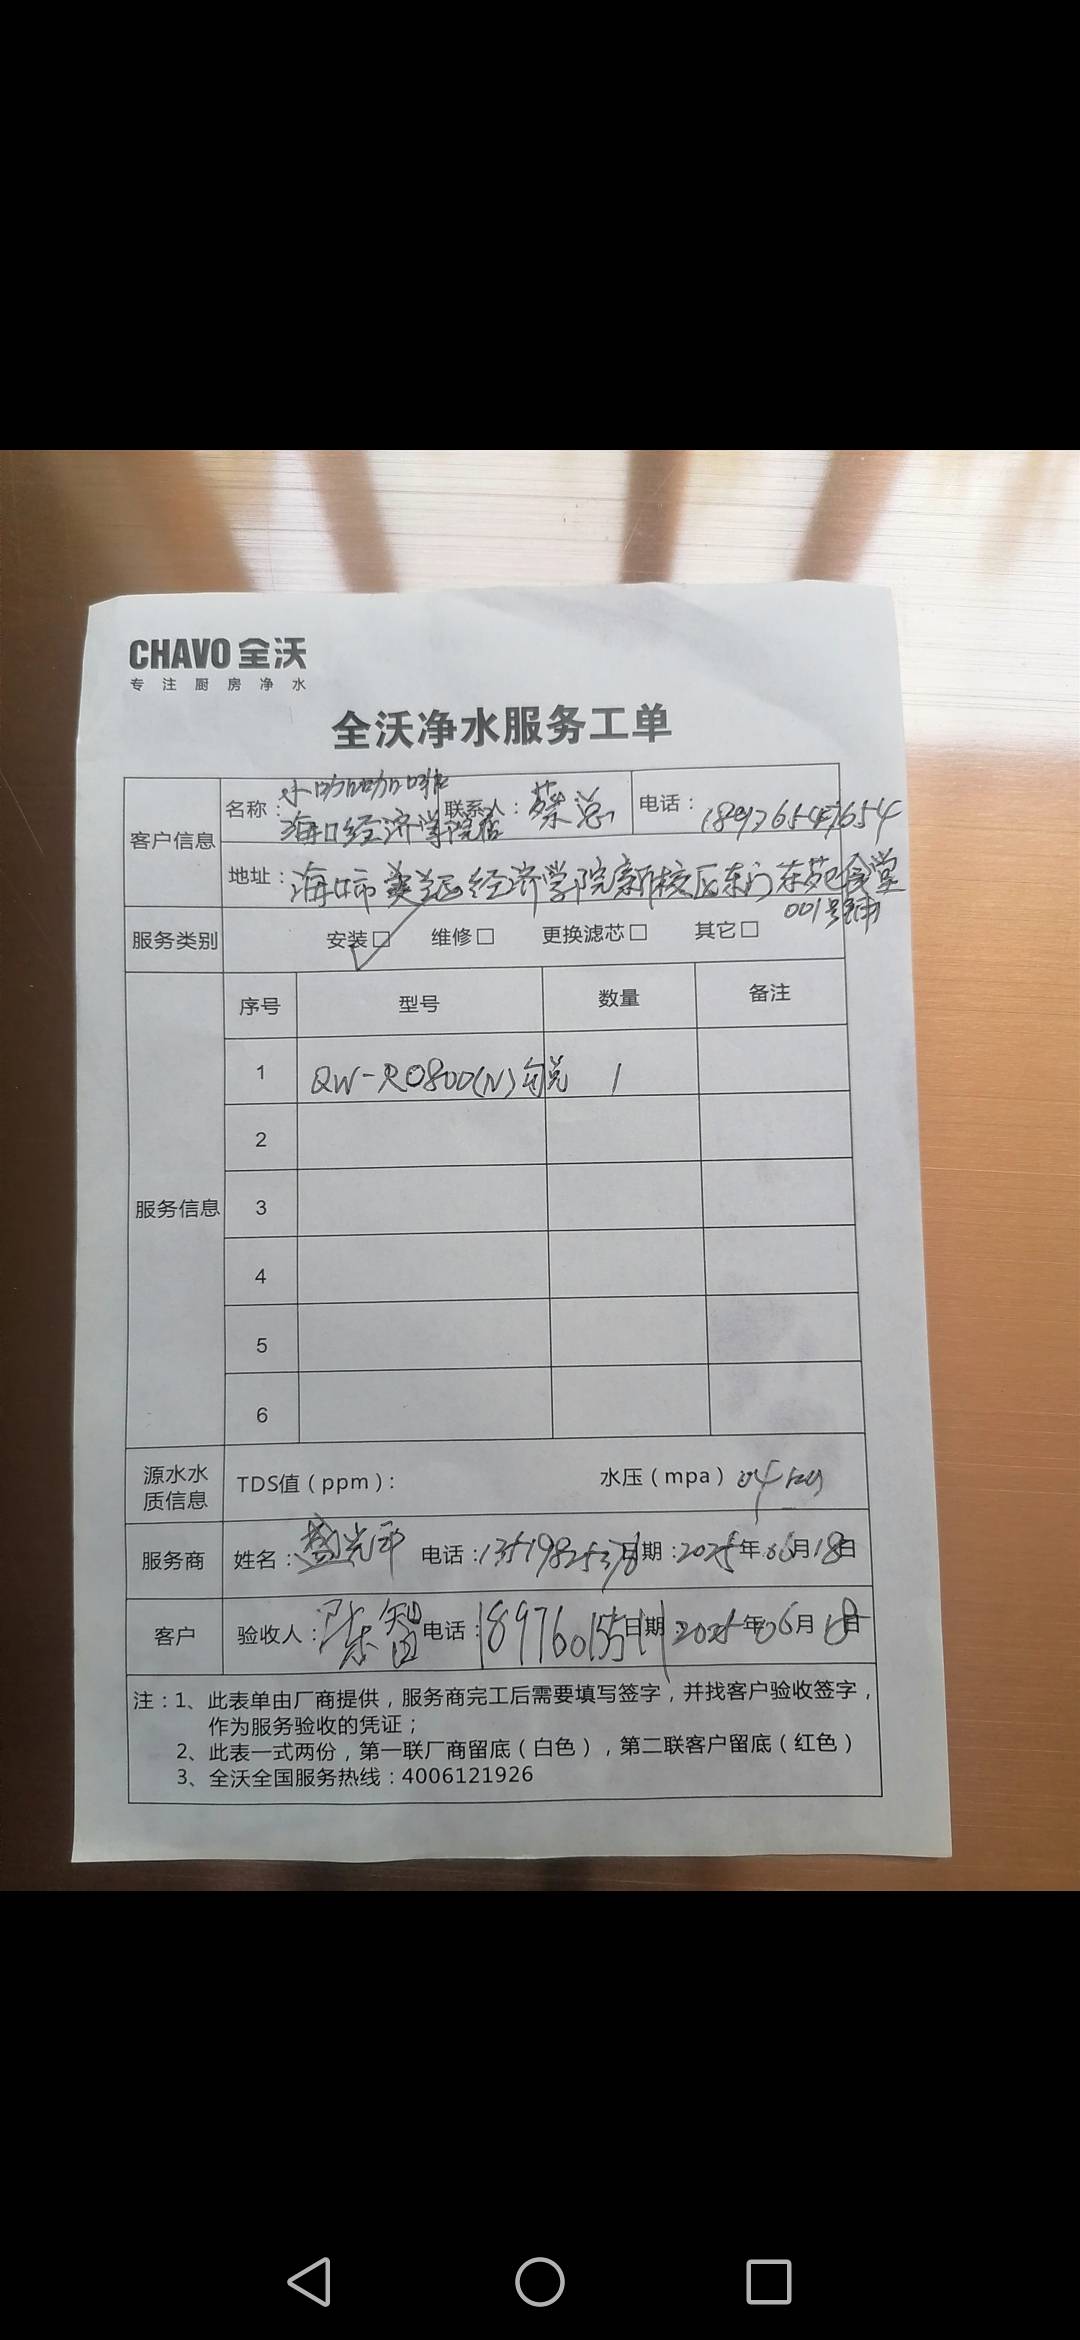 CHAVO 全沃
专注厨房净水
全沃净水服务工单
客户信息
名称：小咖咖啡
海口经济学院店
联系人：蔡总
电话：18976547654
地址：海口市美兰区经济学院新校区东门东苑食堂
001号铺
服务类别 安装□ 维修□ 更换滤芯□ 其它□
服务信息
序号 型号 数量 备注
1 QW-RO800(N) 1
2
3
4
5
6
源水水质信息 TDS值（ppm）： 水压（mpa）04
服务商 姓名：盛光平 电话：13519825376 日期：2025年06月18日
客户 验收人：陈智 电话： 日期：2025年06月18日
注：1、此表单由厂商提供，服务商完工后需要填写签字，并找客户验收签字，
作为服务验收的凭证；
2、此表一式两份，第一联厂商留底（白色），第二联客户留底（红色）
3、全沃全国服务热线：4006121926